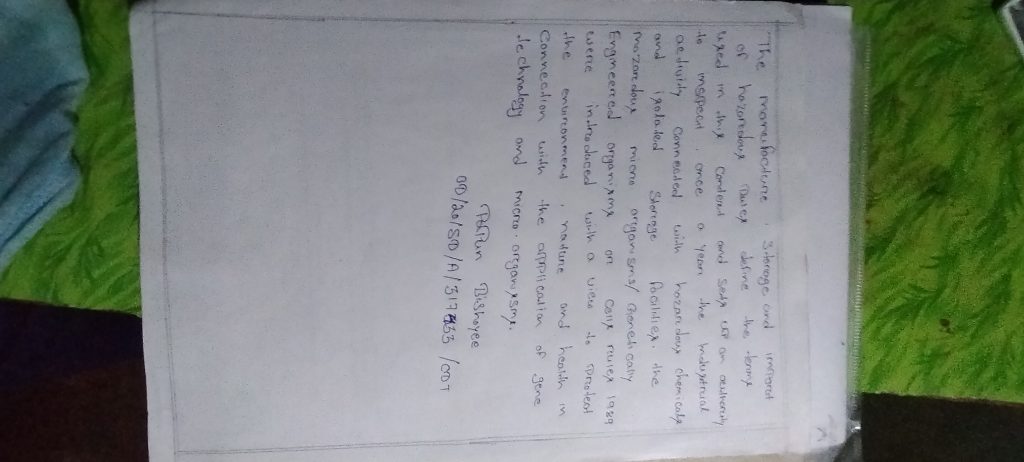 The manufacture, Storage and import
of hazardous Rules define the terms
used in this context and sets up an authority
to inspect, once a year the industrial
activity connected with hazardous chemicals
and isolated Storage facilities. the
mazardous micro organisms/ Genetically
Engineered organisms or cells rules 1989
were introduced with a view to protect
the environment, nature and health in
Connection with the application of gene
technology and micro organisms.
Bishoyee